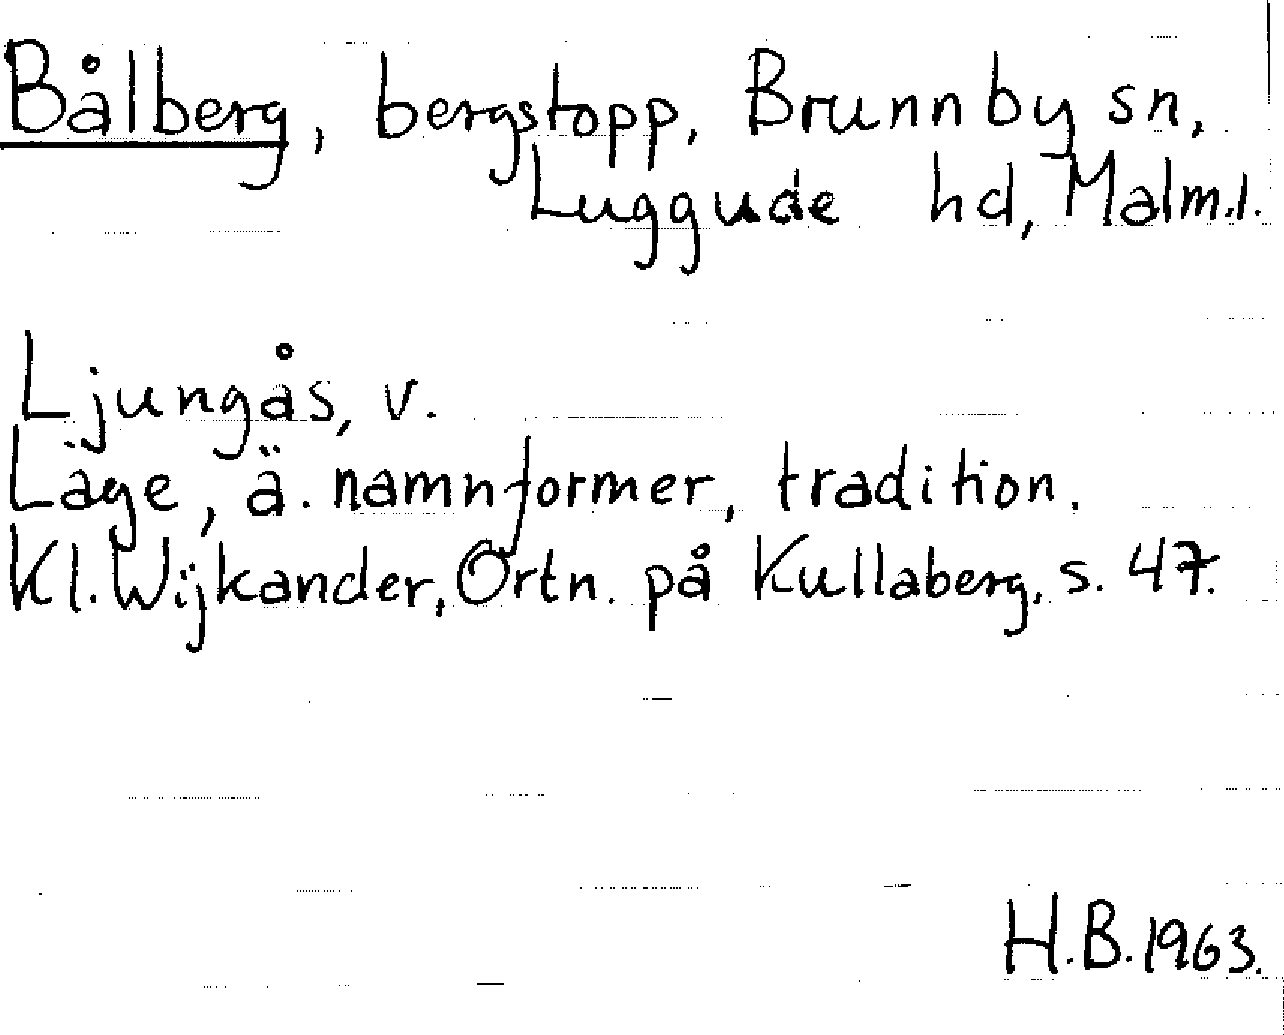 Bålberg, bergstopp, Brunnby sn,
Luggude hd, Malm.l.
Ljungås, v.
Läge, ä. namnformer, tradition.
Kl. Wijkander, Ortn. på Kullaberg, s. 47.
H.B. 1963.